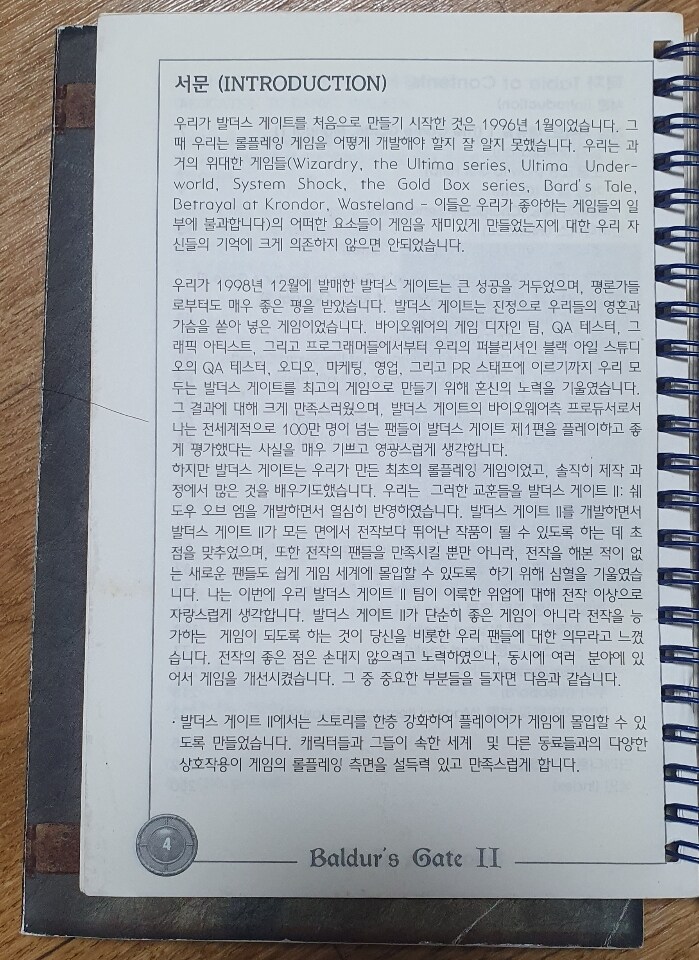 서문 (INTRODUCTION)
우리가 발더스 게이트를 처음으로 만들기 시작한 것은 1996년 1월이었습니다. 그
때 우리는 롤플레잉 게임을 어떻게 개발해야 할지 잘 알지 못했습니다. 우리는 과
거의 위대한 게임들(Wizardry, the Ultima series, Ultima Under-
world, System Shock, the Gold Box series, Bard's Tale,
Betrayal at Krondor, Wasteland - 이들은 우리가 좋아하는 게임들의 일
부에 불과합니다)의 어떠한 요소들이 게임을 재미있게 만들었는지에 대한 우리 자
신들의 기억에 크게 의존하지 않으면 안되었습니다.
우리가 1998년 12월에 발매한 발더스 게이트는 큰 성공을 거두었으며, 평론가들
로부터도 매우 좋은 평을 받았습니다. 발더스 게이트는 진정으로 우리들의 영혼과
가슴을 쏟아 넣은 게임이었습니다. 바이오웨어의 게임 디자인 팀, QA 테스터, 그
래픽 아티스트, 그리고 프로그래머들에서부터 우리의 퍼블리셔인 블랙 아일 스튜디
오의 QA 테스터, 오디오, 마케팅, 영업, 그리고 PR 스태프에 이르기까지 우리 모
두는 발더스 게이트를 최고의 게임으로 만들기 위해 혼신의 노력을 기울였습니다.
그 결과에 대해 크게 만족스러웠으며, 발더스 게이트의 바이오웨어측 프로듀서로서
나는 전세계적으로 100만 명이 넘는 팬들이 발더스 게이트 제1편을 플레이하고 좋
게 평가했다는 사실을 매우 기쁘고 영광스럽게 생각합니다.
하지만 발더스 게이트는 우리가 만든 최초의 롤플레잉 게임이었고, 솔직히 제작 과
정에서 많은 것을 배우기도했습니다. 우리는 그러한 교훈들을 발더스 게이트 II: 쉐
도우 오브 엠을 개발하면서 열심히 반영하였습니다. 발더스 게이트 II를 개발하면서
발더스 게이트 II가 모든 면에서 전작보다 뛰어난 작품이 될 수 있도록 하는 데 초
점을 맞추었으며, 또한 전작의 팬들을 만족시킬 뿐만 아니라, 전작을 해본 적이 없
는 새로운 팬들도 쉽게 게임 세계에 몰입할 수 있도록 하기 위해 심혈을 기울였습
니다. 나는 이번에 우리 발더스 게이트 II 팀이 이룩한 위업에 대해 전작 이상으로
자랑스럽게 생각합니다. 발더스 게이트 II가 단순히 좋은 게임이 아니라 전작을 능
가하는 게임이 되도록 하는 것이 당신을 비롯한 우리 팬들에 대한 의무라고 느꼈
습니다. 전작의 좋은 점은 손대지 않으려고 노력하였으나, 동시에 여러 분야에 있
어서 게임을 개선시켰습니다. 그 중 중요한 부분들을 들자면 다음과 같습니다.
· 발더스 게이트 II에서는 스토리를 한층 강화하여 플레이어가 게임에 몰입할 수 있
도록 만들었습니다. 캐릭터들과 그들이 속한 세계 및 다른 동료들과의 다양한
상호작용이 게임의 롤플레잉 측면을 설득력 있고 만족스럽게 합니다.
4
Baldur's Gate II